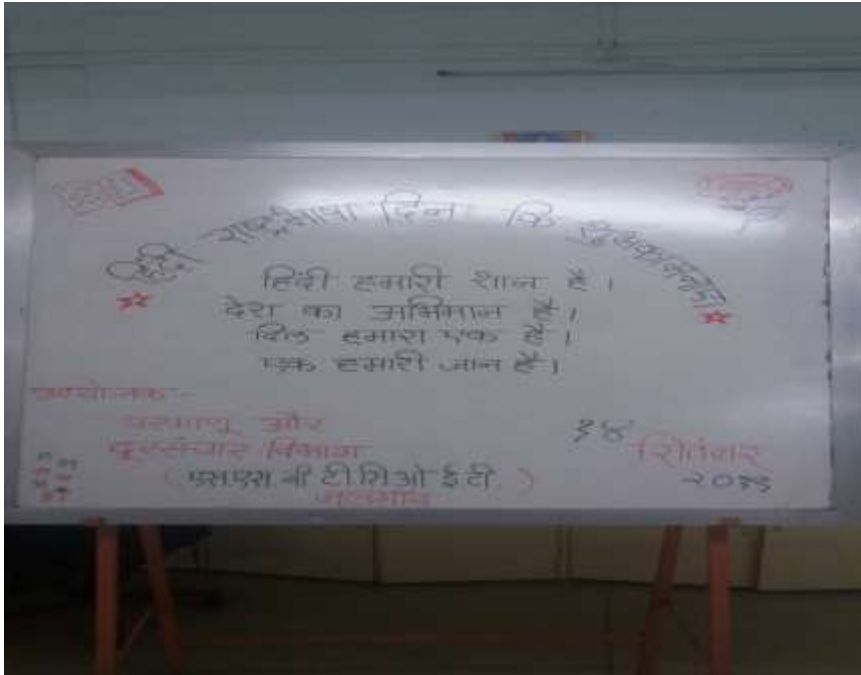 हिंदी राष्ट्रभाषा दिन कि शुभकामनाएं
हिंदी हमारी शान है।
देश का अभिमान है।
दिल हमारा एक है।
एक हमारी जान है।
आयोजक:-
परमाणू और
दूरसंचार विभाग
(एस.एस.बी टी सिओ ई टी )
जलगांव
१४
सितंबर